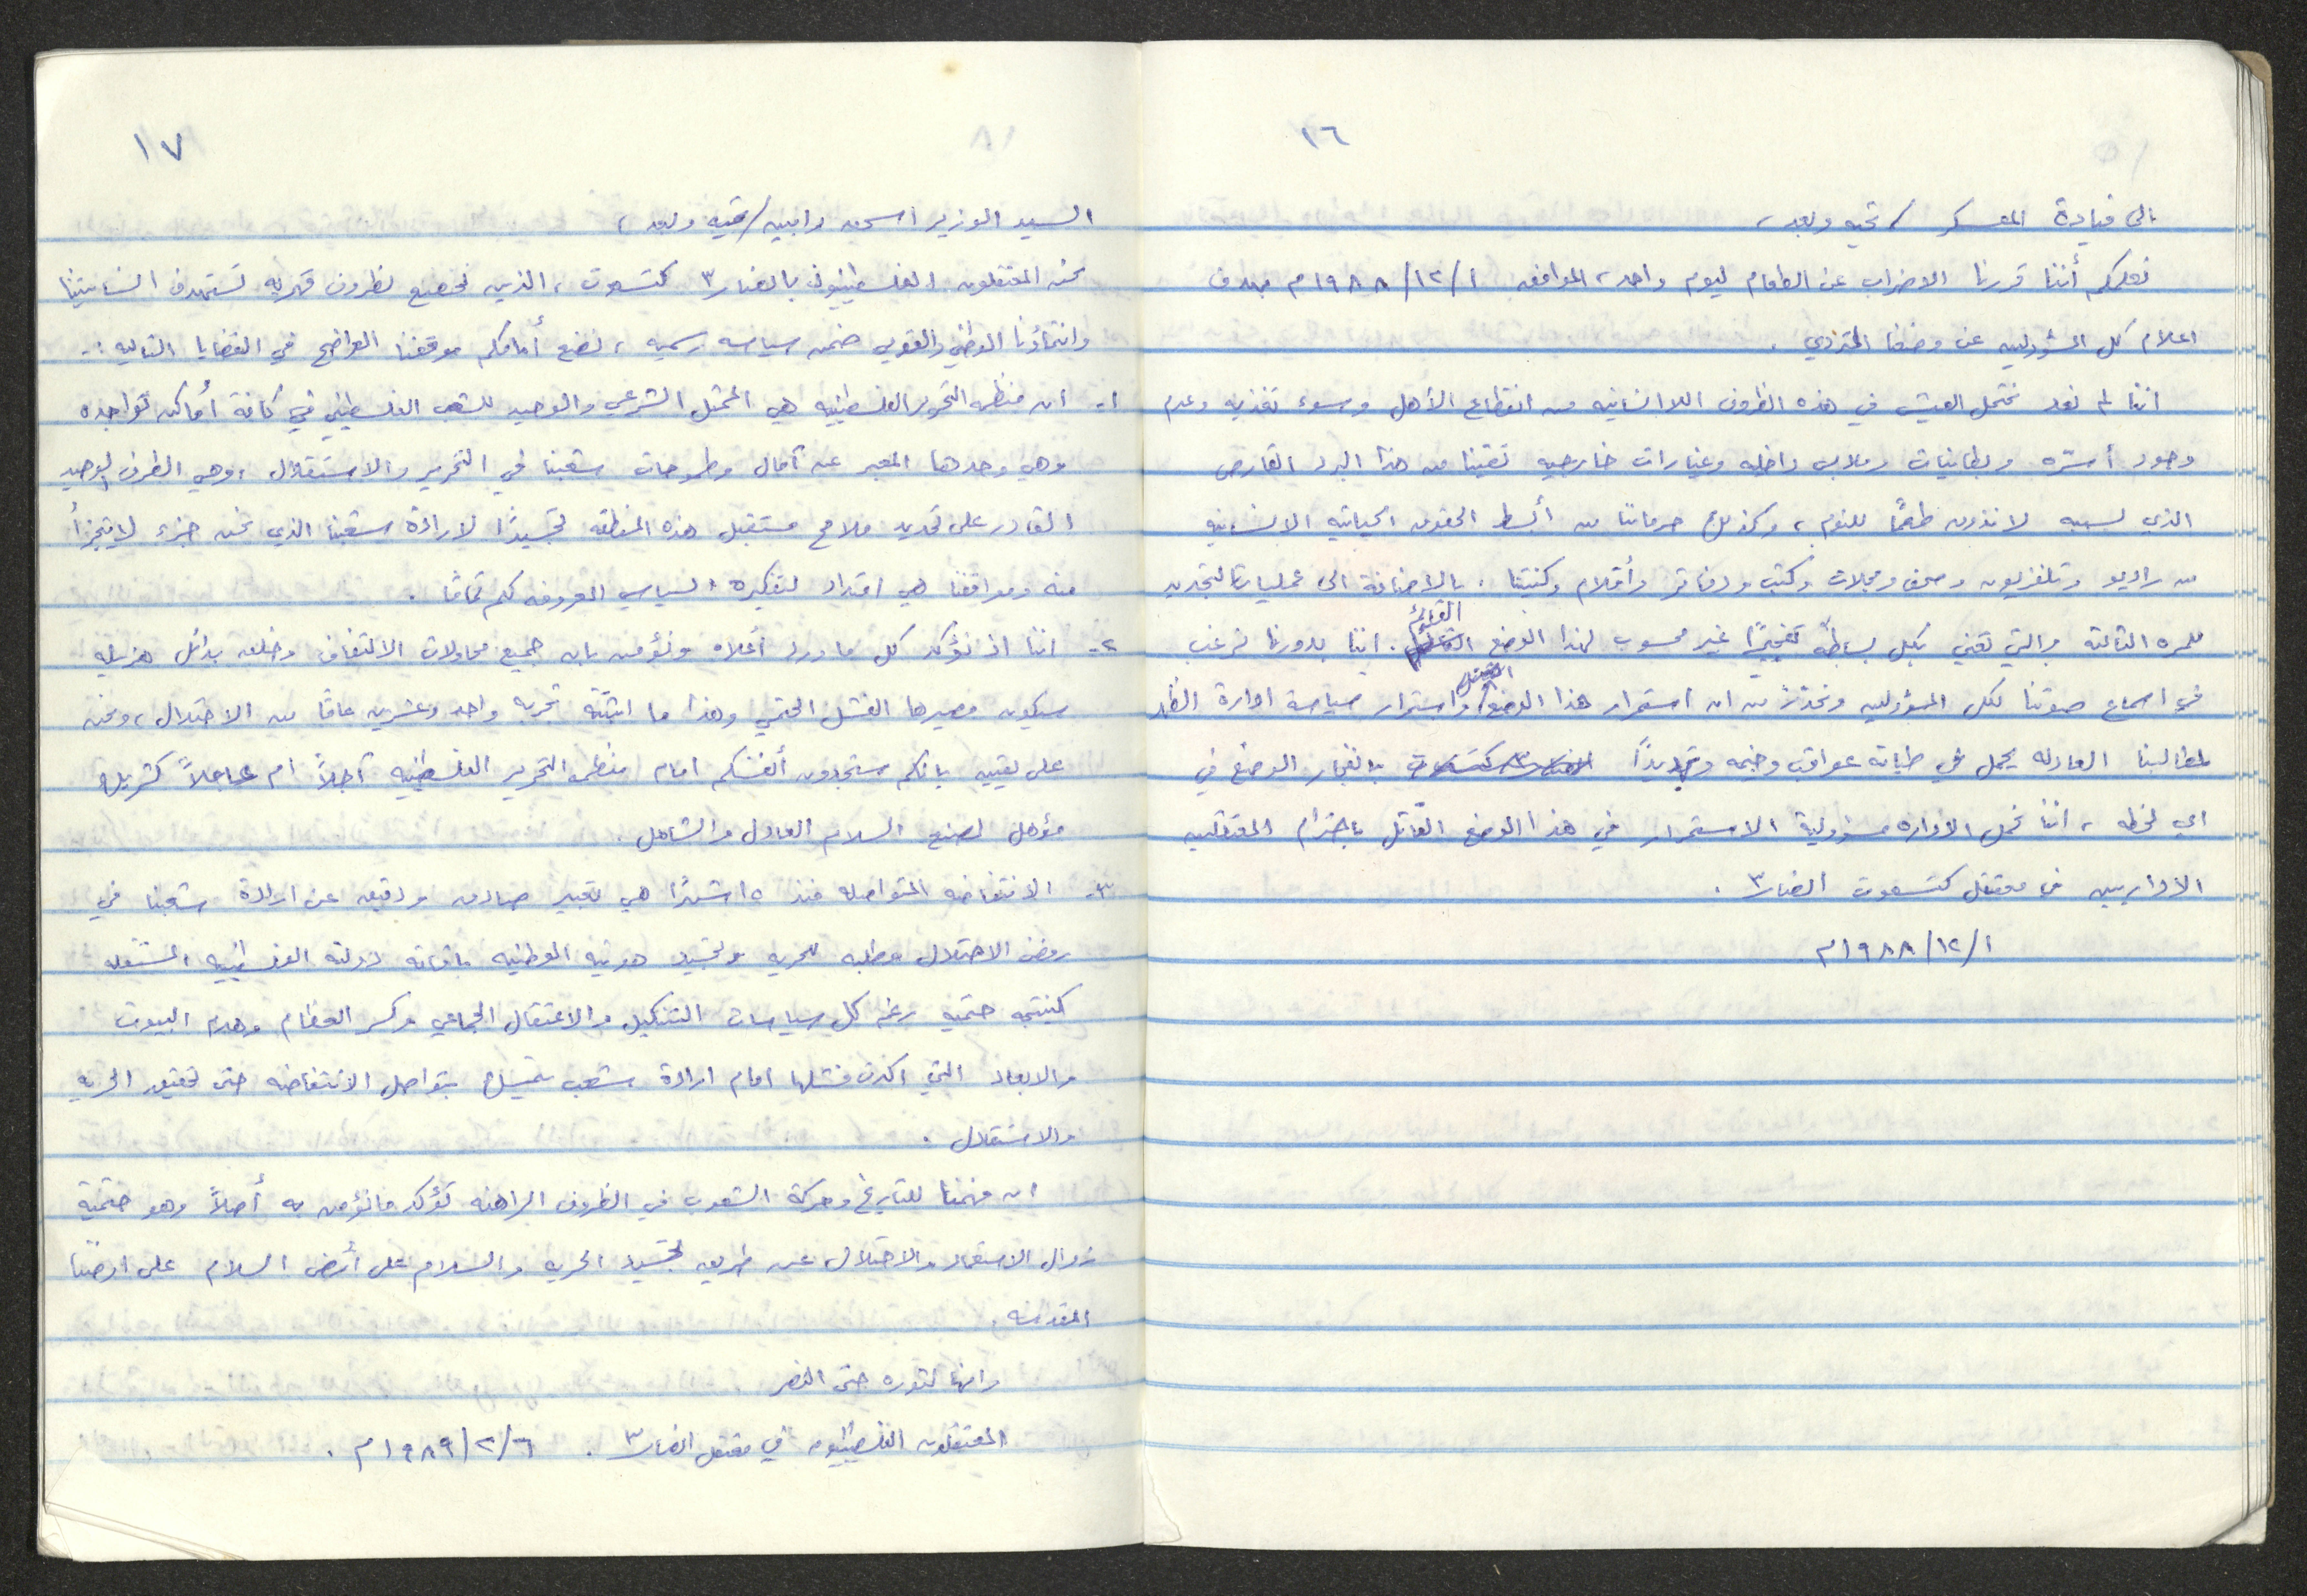 ١٦
الى قيادة المعسكر / تحيه وبعد ،
نعلمكم أننا قررنا الاضراب عن الطعام ليوم واحد ، الموافق ١/١٢/١٩٨٨م بهدف
اعلام كل المسؤولين عن وضعنا المتردي .
اننا لم نعد نحتمل العيش في هذه الظروف اللاانسانيه من انقطاع الأهل وسوء تغذيه وعدم
وجود أسرّه وبطانيات وملابس داخليه وغيارات خارجيه تقينا من هذا البرد القارص
الذي بسببه لا نذوق طعمًا للنوم ، وكذلك حرماننا من أبسط الحقوق الحياتيه الانسانيه
من راديو وتلفزيون وصحف ومجلات وكتب ودفاتر وأقلام وكنتينا . بالاضافة الى عمليات التجديد
للمره الثالثة والتي تعني بكل بساطة تفجيرًا غير محسوب لهذا الوضع القائم . اننا بدورنا نرغب
في اسماع صوتنا لكل المسؤولين ونحذر من ان استمرار هذا الوضع واستمرار سياسة ادارة الظهر
لمطالبنا العادله يحمل في طياته عواقب وخيمه وتهديدًا بانفجار الوضع في
اي لحظه ، اننا نحمل الاداره مسؤولية الاستمرار في هذا الوضع القاتل باحترام المعتقلين
الاداريين في معتقل كتسعوت انصار٣ .
١/١٢/١٩٨٨م
١٧
السيد الوزير اسحق رابين / تحيه وبعد ،
نحن المعتقلون الفلسطينيون بانصار٣ كتسعوت ، الذين نخضع لظروف قهريه تستهدف انسانيتنا
وانتماؤنا الوطني والقومي ضمن سياسه رسميه ، نضع أمامكم موقفنا الواضح في القضايا التاليه :-
١- ان منظمه التحرير الفلسطينيه هي الممثل الشرعي والوحيد للشعب الفلسطيني في كافة أماكن تواجده
وهي وحدها المعبر عن آمال وطموحات شعبنا في التحرير والاستقلال ، وهي الطرف الوحيد
القادر على تحديد ملامح مستقبل هذه المنطقه تجسيدًا لارادة شعبنا الذي نحن جزء لا يتجزأ
منه ومواقفنا هي امتداد لتفكيره السياسي المعروفه لكم تمامًا .
٢- اننا اذ نؤكد كل ما ورد أعلاه ونؤمن بان جميع محاولات الالتفاف وخلق بدائل هزيله
سيكون مصيرها الفشل الحتمي وهذا ما اثبتته تجربه واحد وعشرين عامًا من الاحتلال ، ونحن
على يقين بانكم ستجدون أنفسكم امام منظمه التحرير الفلسطينيه آجلاً ام عاجلاً كشريك
مؤهل لصنع السلام العادل والشامل .
٣- الانتفاضه المتواصله منذ ١٥ شهرًا هي تعبير صادق ودقيق عن ارادة شعبنا في
رفض الاحتلال وطلبه للحريه وتجسيد هويته الوطنيه باقامة دولته الفلسطينيه المستقله
كنتيجه حتميه رغم كل سياسات التنكيل والاعتقال الجماعي وكسر العظام وهدم البيوت
والابعاد التي اكدت فشلها امام ارادة شعب يتمسك بتواصل الانتفاضه حتى تحقيق الحريه
والاستقلال .
ان فهمنا للتاريخ وحركة الشعوب في الظروف الراهنه تؤكد ما نؤمن به أصلاً وهو حتمية
زوال الاستعمار والاحتلال عن طريق تجسيد الحريه والسلام على أرض السلام على ارضنا
المقدسه .
وانها لثوره حتى النصر
المعتقلون الفلسطينيون في معتقل انصار٣ . ٦/٢/١٩٨٩م .